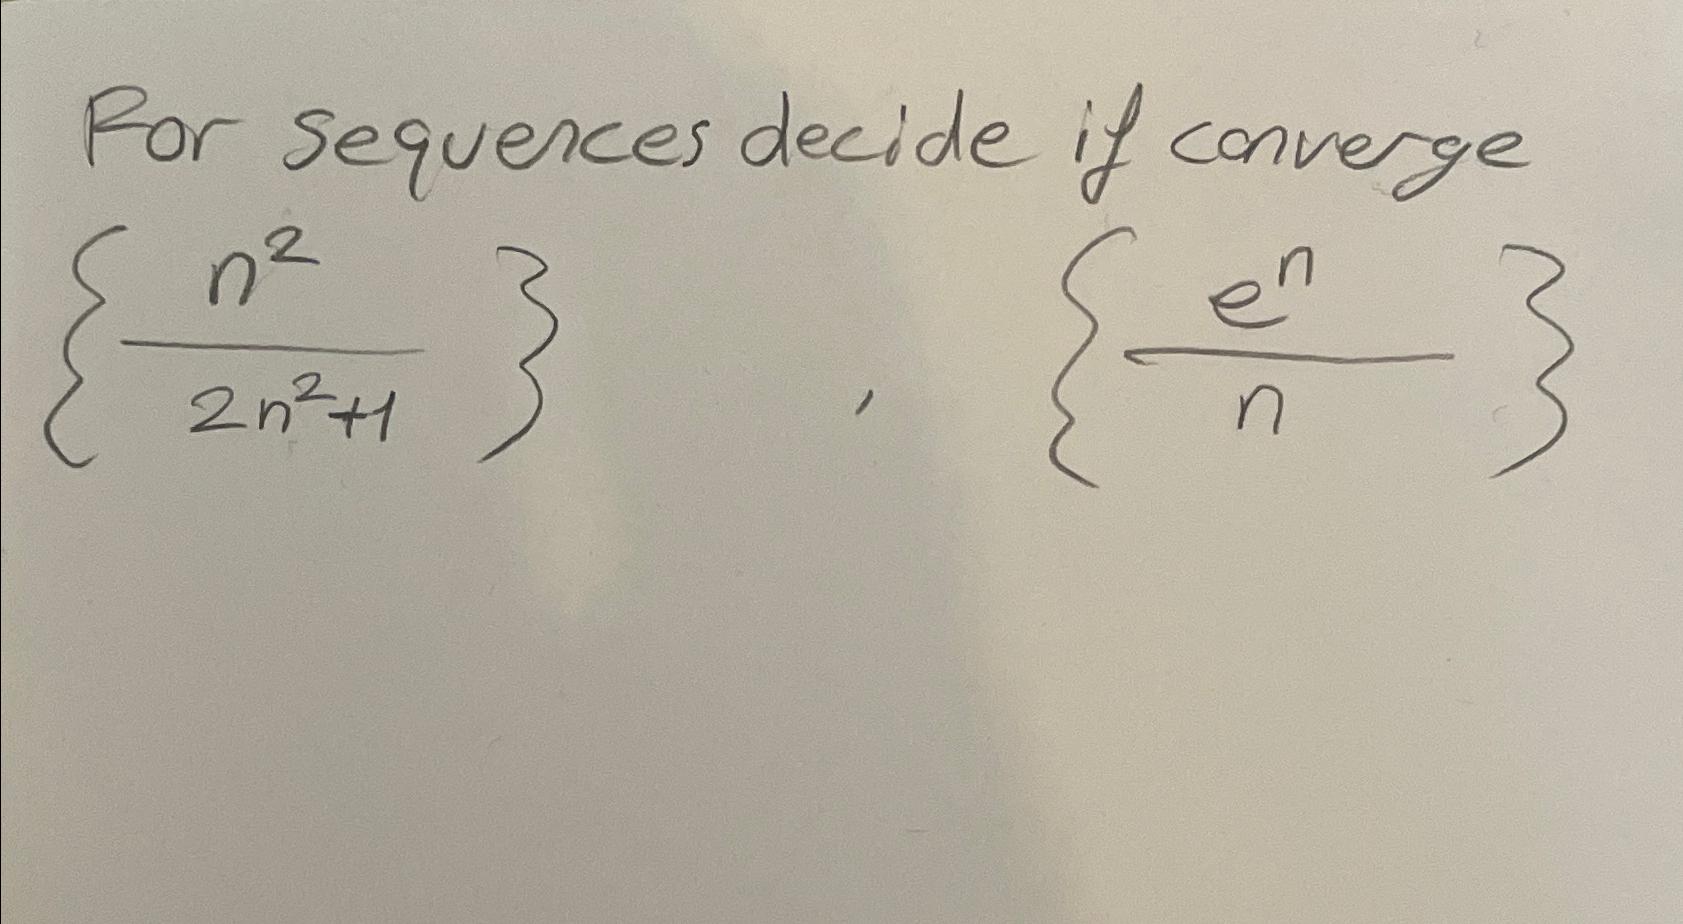 For sequences decide if converge
{ n² / 2n²+1 } , { eⁿ / n }